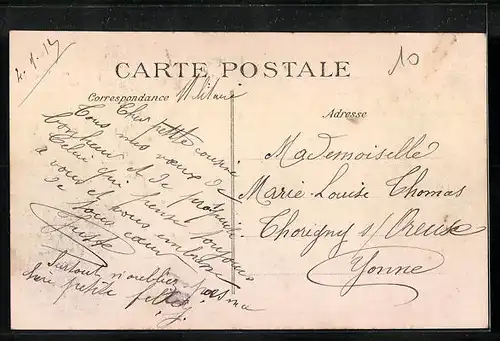 2.1.12
10
CARTE POSTALE
Correspondance Militaire
Adresse
Chère petite cousine
Tous mes vœux de
bonheur et de prospérité
Celui qui pense toujours
à vous et vous embrasse
de tous cœur
Surtout n'oublier pas ma
bien petite
Mademoiselle
Marie Louise Thomas
Thorigny s/ Oreuse
Yonne